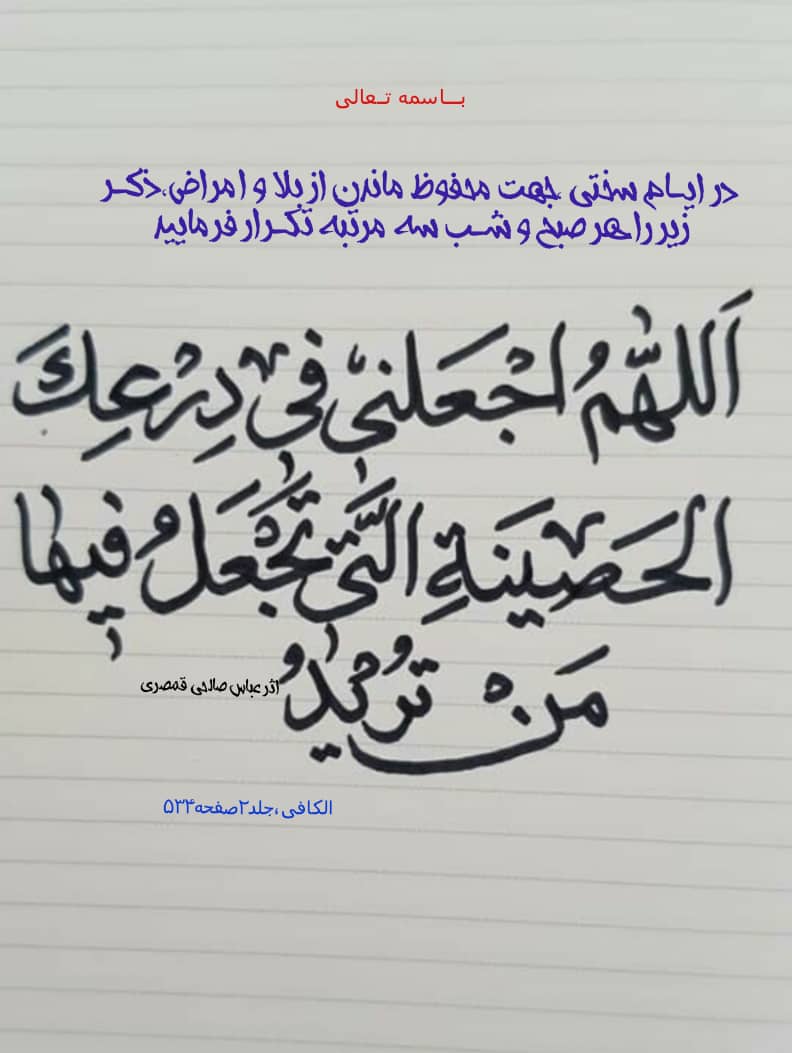 بــاسمه تـعالی
در ایـام سختی جهت محفوظ ماندن از بلا و امراض،ذکـر
زیر را هر صبح و شـب سه مرتبه تکـرار فرمایید
اَللّٰهُمَّ اجْعَلنیٖ فیٖ دِرْعِكَ
الحَصیٖنَةِ الَّتیٖ تَجْعَلُ فیٖهٰا
مَنْ تُریٖدُ
اثر عباس صالحی قمصری
الکافی،جلد۲صفحه۵۳۴